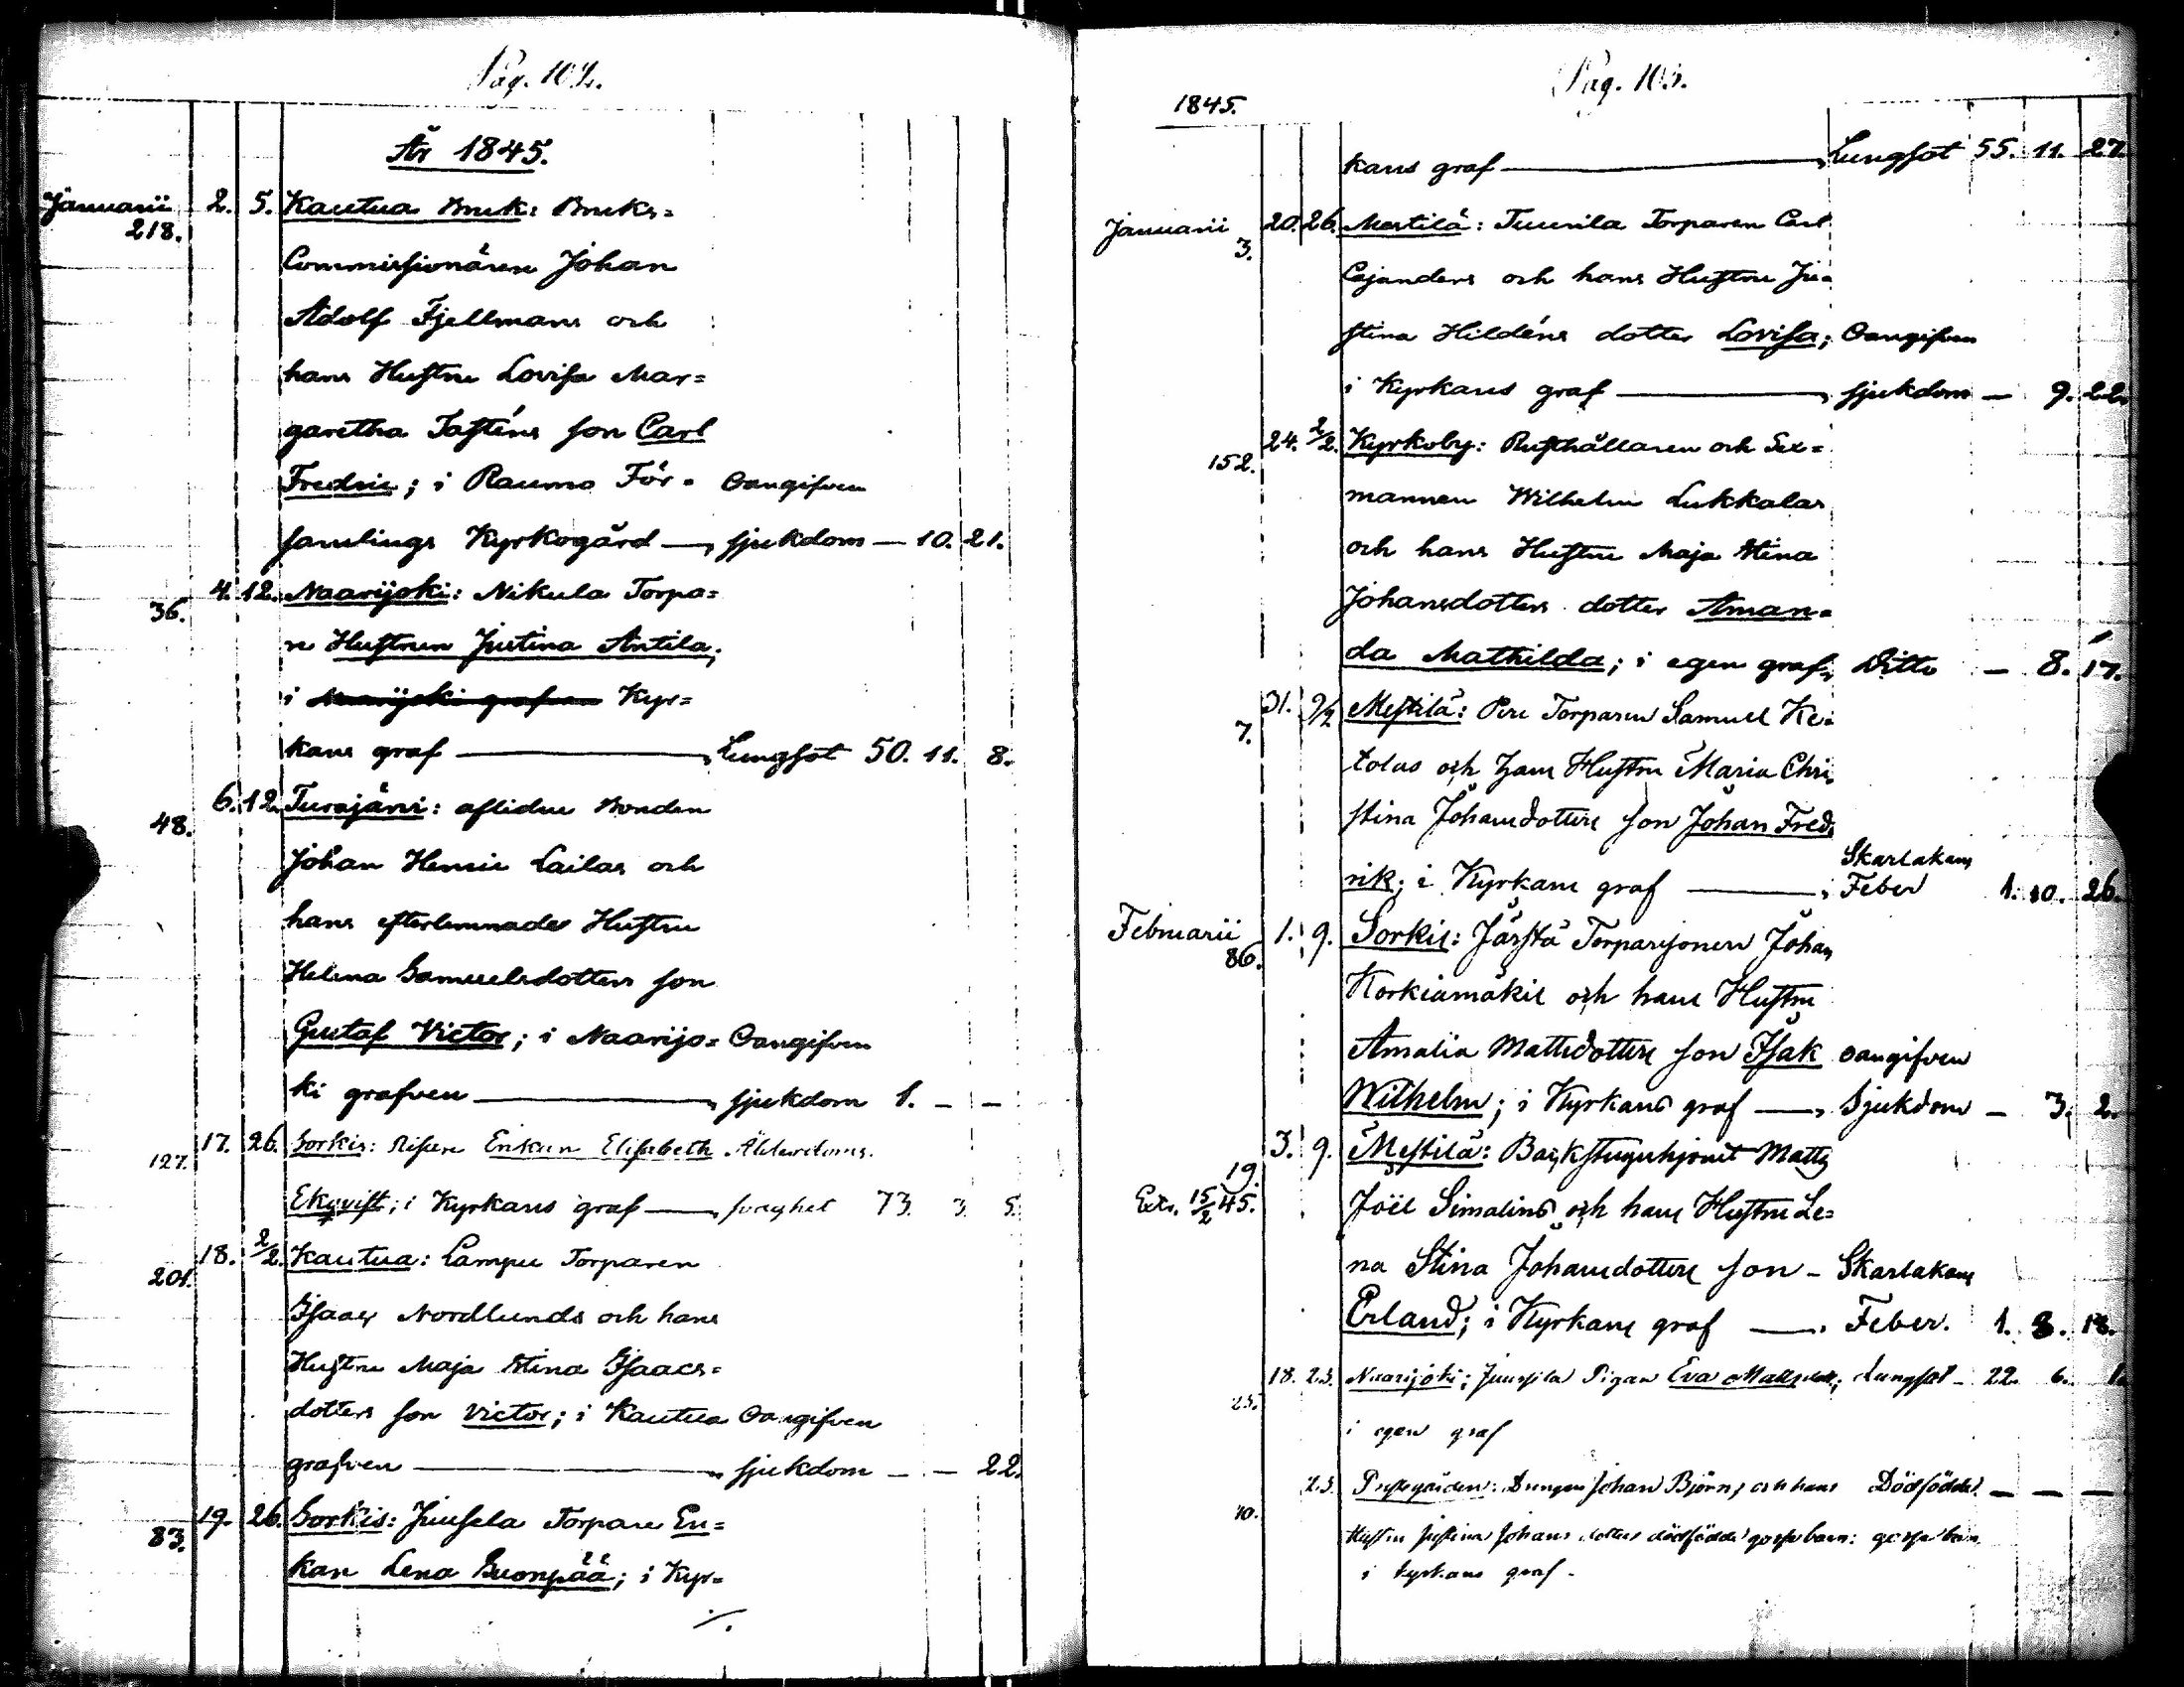 Pag. 102.
År 1845.
Januarii 2. 5. Kautua Bruk: Bruks=
218.
Commissionären Johan
Adolf Fjellmans och
hans Hustru Lovisa Mar=
garetha Tasténs son Carl
Fredric; i Raumo För= Oangifven
samlings Kyrkogård — sjukdom — 10. 21.
4. 12. Naarijoki: Nikula Torpa=
36.
re Hustrun Justina Antila;
i Naarijoki grafven Kyr=
kans graf — Lungsot 50. 11. 8.
6. 12. Turajärvi: aflidne Bonden
48.
Johan Henric Lailas och
hans efterlemnades Hustru
Helena Samuelsdotters son
Gustaf Victor; i Naarijo= Oangifven
ki grafven — sjukdom 1. — —
17. 26. Sorkis: Enkan Elisabeth Ålderdoms
127.
Ekqvist; i Kyrkans graf — svaghet 73. 3. 5.
18. 2/2. Kautua: Lampu Torparen
201.
Isaac Nordlunds och hans
Hustru Maja Stina Isaacs=
dotters son Victor; i Kautua Oangifven
grafven — sjukdom — — 22.
19. 26. Sorkis: Juusela Torpare En=
83.
kan Lena Suonpää; i Kyr=
./.
Pag. 103.
1845.
kans graf — Lungsot 55. 11. 27.
Januarii 20. 26. Mestilä: Tuurila Torparen Carl
3.
Cajanders och hans Hustru Ju=
stina Hildéns dotter Lovisa; Oangifven
i Kyrkans graf — sjukdom — 9. 22.
24. 2/2. Kyrkoby: Rusthållaren och Sex=
152.
mannen Wilhelm Lukkalas
och hans Hustru Maja Stina
Johansdotters dotter Aman=
da Mathilda; i egen graf, Ditto — 8. 17.
31. 9/2 Mestilä: Torparen Samuel Kei
7.
tolas och hans Hustru Maria Chri
stina Johansdotters son Johan Fred
Skarlakans
rik; i Kyrkans graf — Feber 1. 10. 26.
Februarii 1. 9. Sorkis: Torparesonen Johan
86.
Korkiamäkis och hans Hustru
Amalia Mattsdotters son Isak oangifven
Wilhelm; i Kyrkans graf — Sjukdom — 3. 2.
3. 9. Mestilä: Backstuguhjonet Matts
19.
Extr. 15/2 45. Joël Simalins och hans Hustru Le=
na Stina Johansdotters son — Skarlakans
Erland; i Kyrkans graf — Feber. 1. 8. 18.
18. 23. Naarijoki; Juusila Pigan Eva Mattsdott; Lungsot — 22. 6. 1.
25.
i egen graf
23. Prestgården: Drengen Johan Björns och hans Dödfödde. — — —
10.
Hustru Justina Johans dotters dödfödde gosse barn: gosse barn
i kyrkans graf.